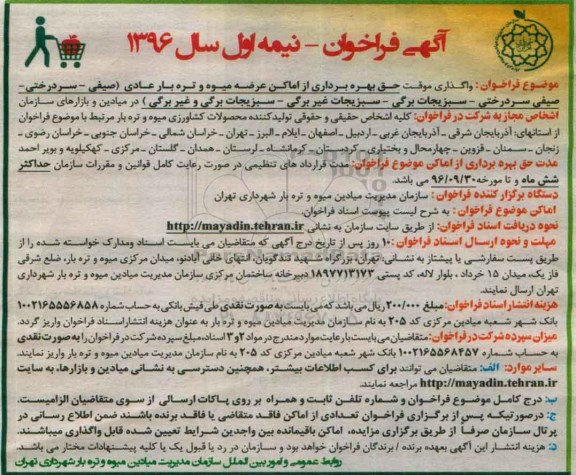 آگهی فراخوان - نیمه اول سال ۱۳۹۶
موضوع فراخوان: واگذاری موقت حق بهره برداری از اماکن عرضه میوه و تره بار عادی (صیفی - سردرختی -
صیفی سردرختی - سبزیجات برگی - سبزیجات غیر برگی - سبزیجات برگی و غیر برگی) در میادین و بازارهای سازمان
اشخاص مجاز به شرکت در فراخوان: کلیه اشخاص حقیقی و حقوقی تولیدکننده محصولات کشاورزی میوه و تره بار مرتبط با موضوع فراخوان
از استانهای: آذربایجان شرقی - آذربایجان غربی - اردبیل - اصفهان - ایلام - البرز - تهران - خراسان شمالی - خراسان جنوبی - خراسان رضوی -
زنجان - سمنان - قزوین - چهارمحال و بختیاری - کردستان - کرمانشاه - لرستان - همدان - گلستان - مرکزی - کهکیلویه و بویر احمد
مدت حق بهره برداری از اماکن موضوع فراخوان: مدت قرارداد های تنظیمی در صورت رعایت کامل قوانین و مقررات سازمان حداکثر
شش ماه و تا مورخه ۹۶/۰۹/۳۰ می باشد.
دستگاه برگزار کننده فراخوان: سازمان مدیریت میادین میوه و تره بار شهرداری تهران
اماکن موضوع فراخوان: به شرح لیست پیوست اسناد فراخوان.
نحوه دریافت اسناد فراخوان: از طریق سایت سازمان به نشانی http://mayadin.tehran.ir
مهلت و نحوه ارسال اسناد فراخوان: ۱۰ روز پس از تاریخ درج آگهی که متقاضیان می بایست اسناد ومدارک خواسته شده را از
طریق پست سفارشی یا پیشتاز به نشانی: تهران، بزرگراه شهید تندگویان، انتهای خانی آبادنو، میدان مرکزی میوه و تره بار، ضلع شرقی
فاز یک، میدان ۱۵ خرداد، بلوار لاله، کد پستی ۱۸۹۷۷۱۳۱۷۳ دبیرخانه ساختمان مرکزی سازمان مدیریت میادین میوه و تره بار شهرداری
تهران ارسال نمایند.
هزینه انتشار اسناد فراخوان: مبلغ ۲۰۰/۰۰۰ ریال می باشد که می بایست به صورت نقدی طی فیش بانکی به حساب شماره ۱۰۰۲۱۶۵۵۵۶۸۵۸
بانک شهر شعبه میادین مرکزی کد ۲۰۵ به نام سازمان مدیریت میادین میوه و تره بار به عنوان هزینه انتشار اسناد فراخوان واریز گردد.
میزان سپرده شرکت در فراخوان: متقاضیان می بایست با رعایت موارد مندرج در مواد ۲ و ۳ اسناد، مبلغ سپرده شرکت در فراخوان را به صورت نقدی
به حساب شماره ۱۰۰۲۱۶۵۵۶۸۴۵۷ بانک شهر شعبه میادین مرکزی کد ۲۰۵ به نام سازمان مدیریت میادین میوه و تره بار واریز نمایند.
سایر موارد: الف: متقاضیان می توانند برای کسب اطلاعات بیشتر، همچنین دسترسی به نشانی میادین و بازارها، به سایت
http://mayadin.tehran.ir مراجعه نمایند.
ب: درج کامل موضوع فراخوان و شماره تلفن ثابت و همراه بر روی پاکات ارسالی از سوی متقاضیان الزامیست.
ج: درصورتیکه پس از برگزاری فراخوان تعدادی از اماکن فاقد متقاضی یا فاقد برنده باشند ضمن اطلاع رسانی در
پرتال سازمان صرفا از طریق برگزاری مزایده، اماکن باقیمانده بین واجدین شرایط تعیین شده قابل واگذاری میباشند.
د: هزینه انتشار این آگهی بعهده برنده / برندگان فراخوان خواهد بود و سازمان در رد یا قبول یک یا کلیه پیشنهادات مختار می باشد.
روابط عمومی و امور بین الملل سازمان مدیریت میادین میوه و تره بار شهرداری تهران